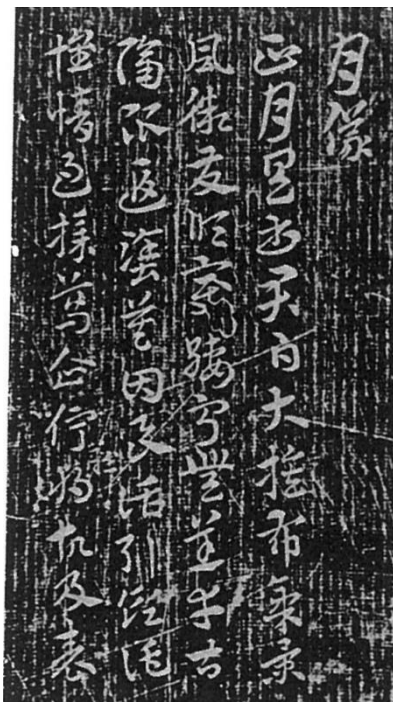 月儀
正月具書君白大蔟布氣景
風微發順變綏寧無恙幸甚
隔限遐塗莫因良話引領託
懷情過採葛企佇難故及表